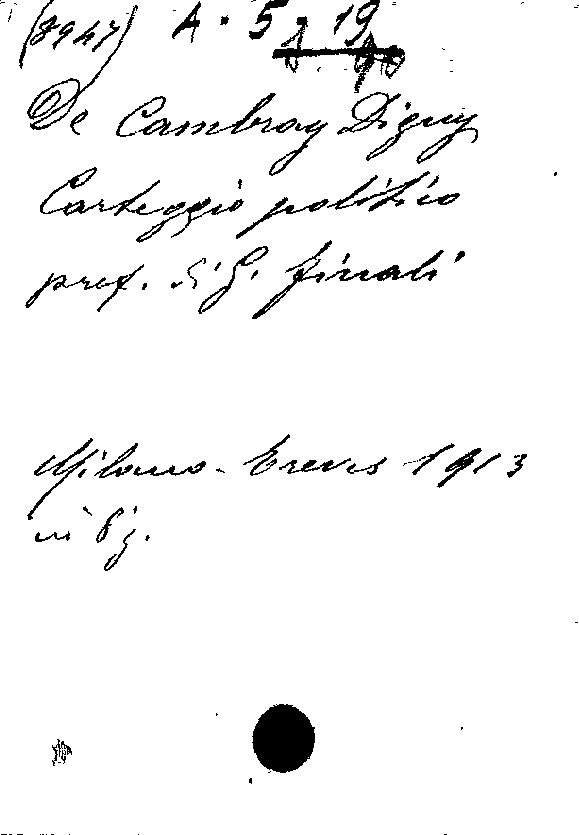 (8947) A. 5. 19
De Cambray Digny
Carteggio politico
pref. di G. Finali
Milano - Treves 1913
in 8º.